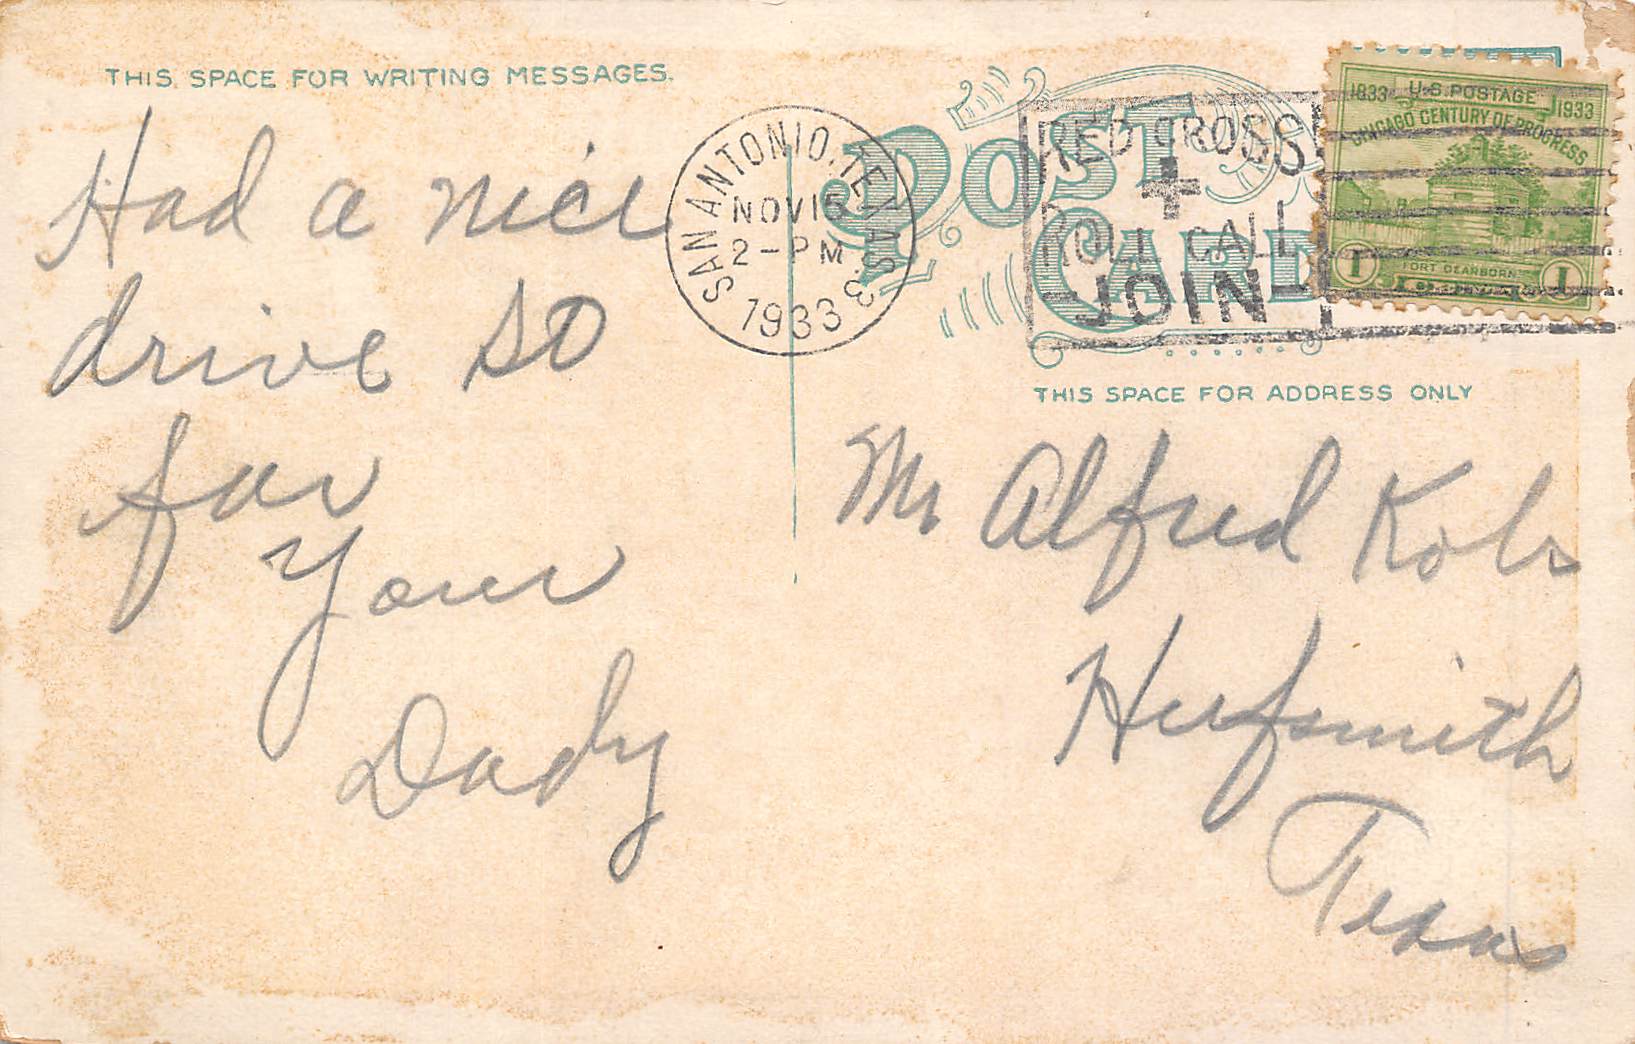 THIS SPACE FOR WRITING MESSAGES.
Had a nice
drive so
far
Your
Dady
SAN ANTONIO, TEXAS. 3
NOV 16
2-PM
1933
POST CARD
RED CROSS
ROLL CALL
JOIN
1833 U.S. POSTAGE 1933
CHICAGO CENTURY OF PROGRESS
FORT DEARBORN
1 1
THIS SPACE FOR ADDRESS ONLY
Mr Alfred Kobs
Hufsmith
Texas